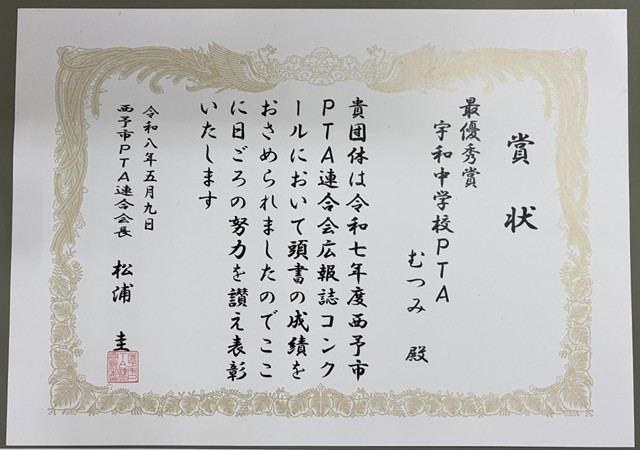 賞状
最優秀賞
宇和中学校PTA
むつみ 殿
貴団体は令和七年度西予市
PTA連合会広報誌コンク
ールにおいて頭書の成績を
おさめられましたのでここ
に日ごろの努力を讃え表彰
いたします
令和八年五月九日
西予市PTA連合会長 松浦 圭